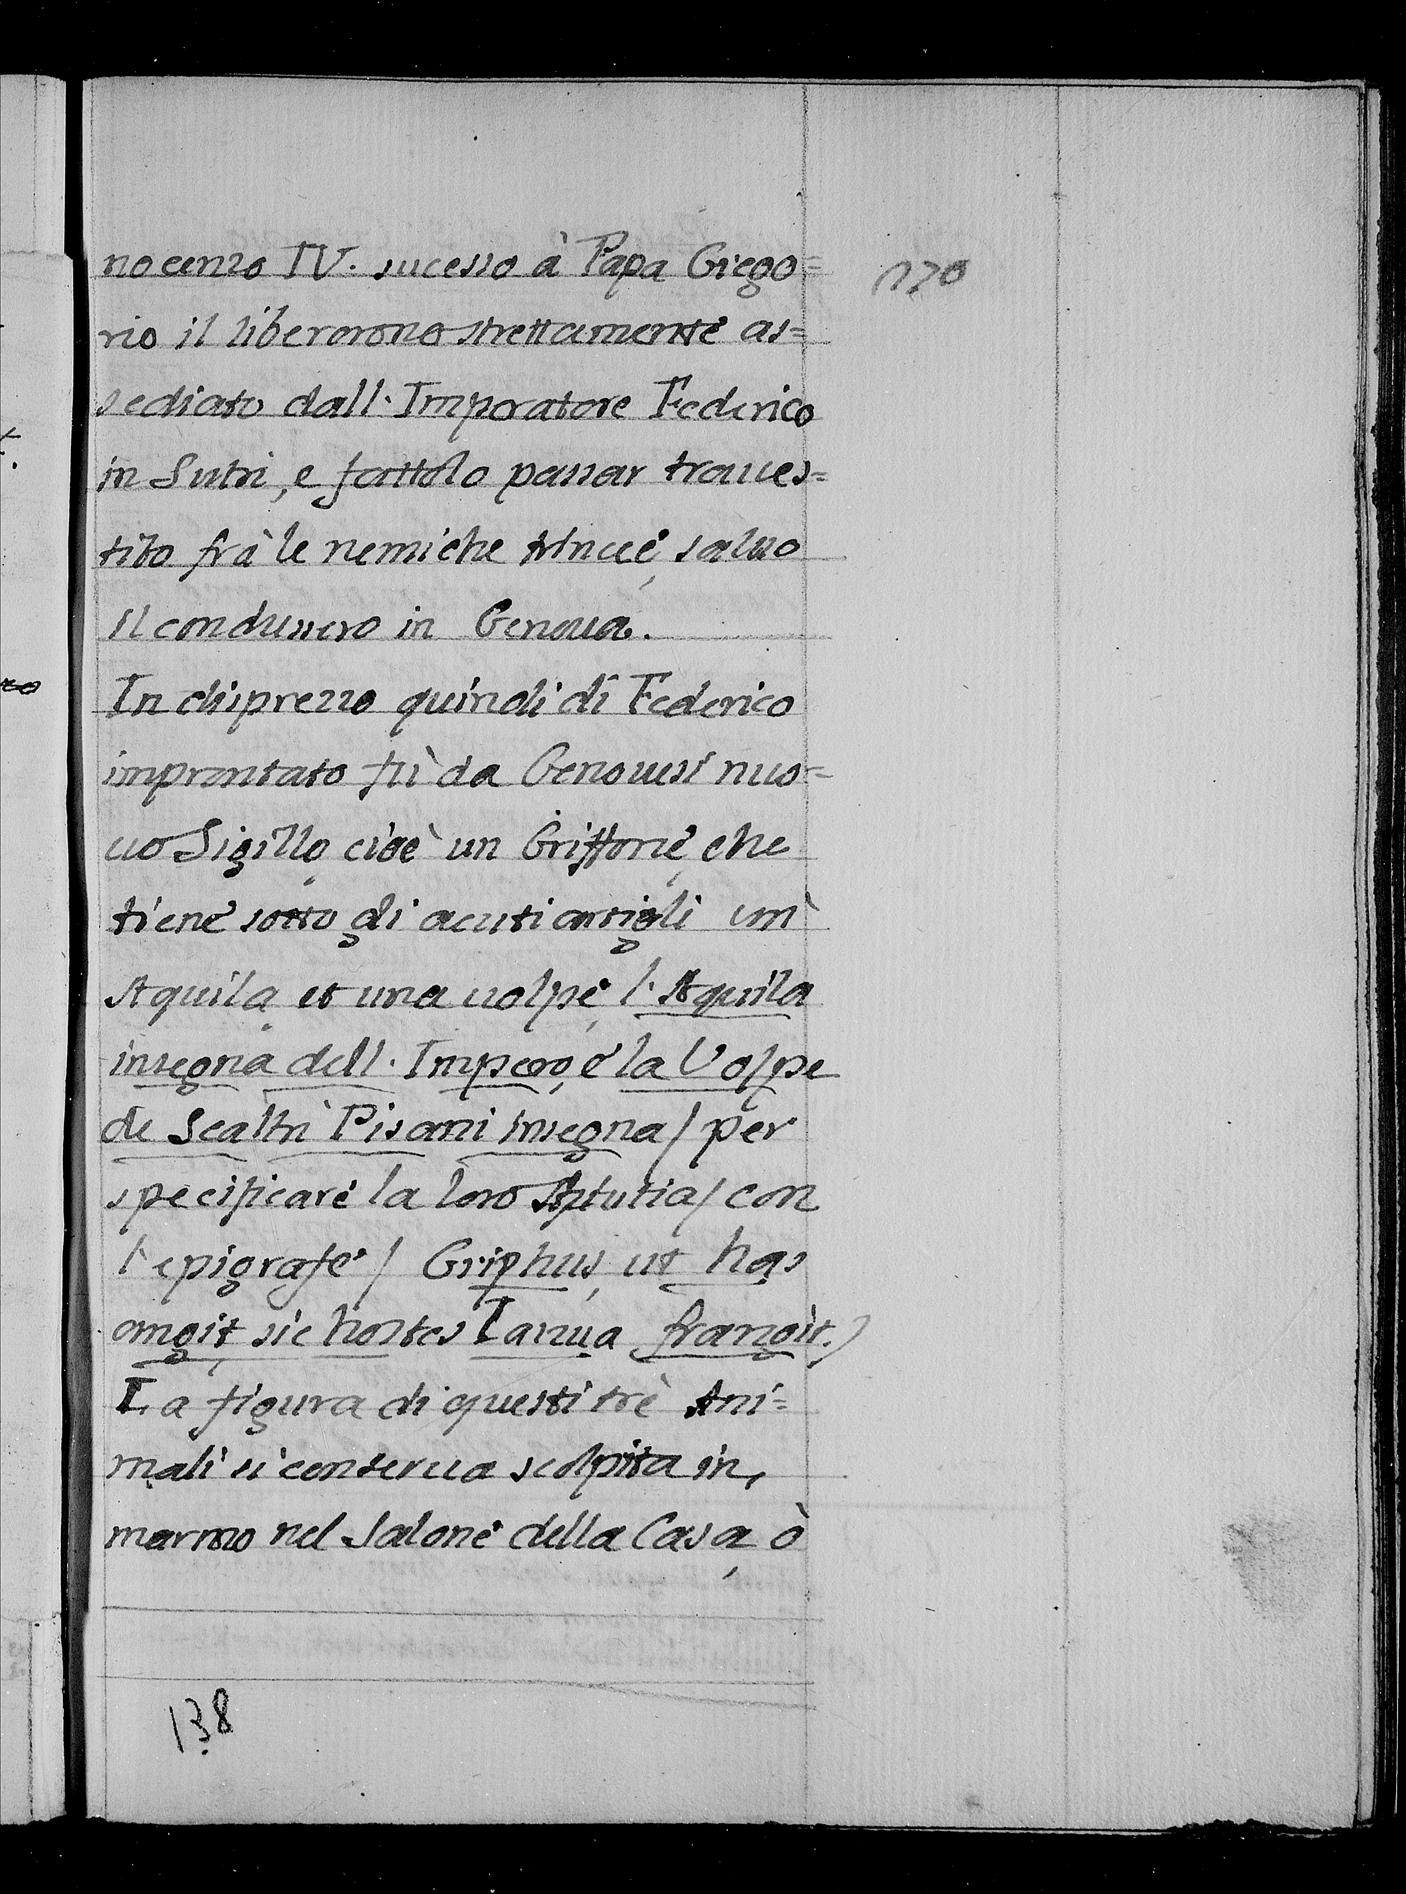 nocenzo IV. sucesso à Papa Grego=
170
rio il liberorono strettamente as=
sediato dall. Imporatore Federico
in Sutri, e fattolo passar traues=
tito frà le nemiche trincee, saluo
il condussero in Genoua.
In disprezzo quindi di Federico
improntato fù da Genouesi nuo=
uo Sigillo, cioè un Griffone, che
tiene sotto gli acuti artigli un
Aquila, et una uolpe, l. Aquila
insegna dell. Impero, e la Volpe
de Scaltri Pisani insegna / per
specificare la loro Astutia / con
l epigrafe / Griphus, ut has
angit, sic hostes Ianua frangit. /
La figura di questi trè Ani=
mali si conserua scolpita in,
marmo nel Salone della Casa, ò
138